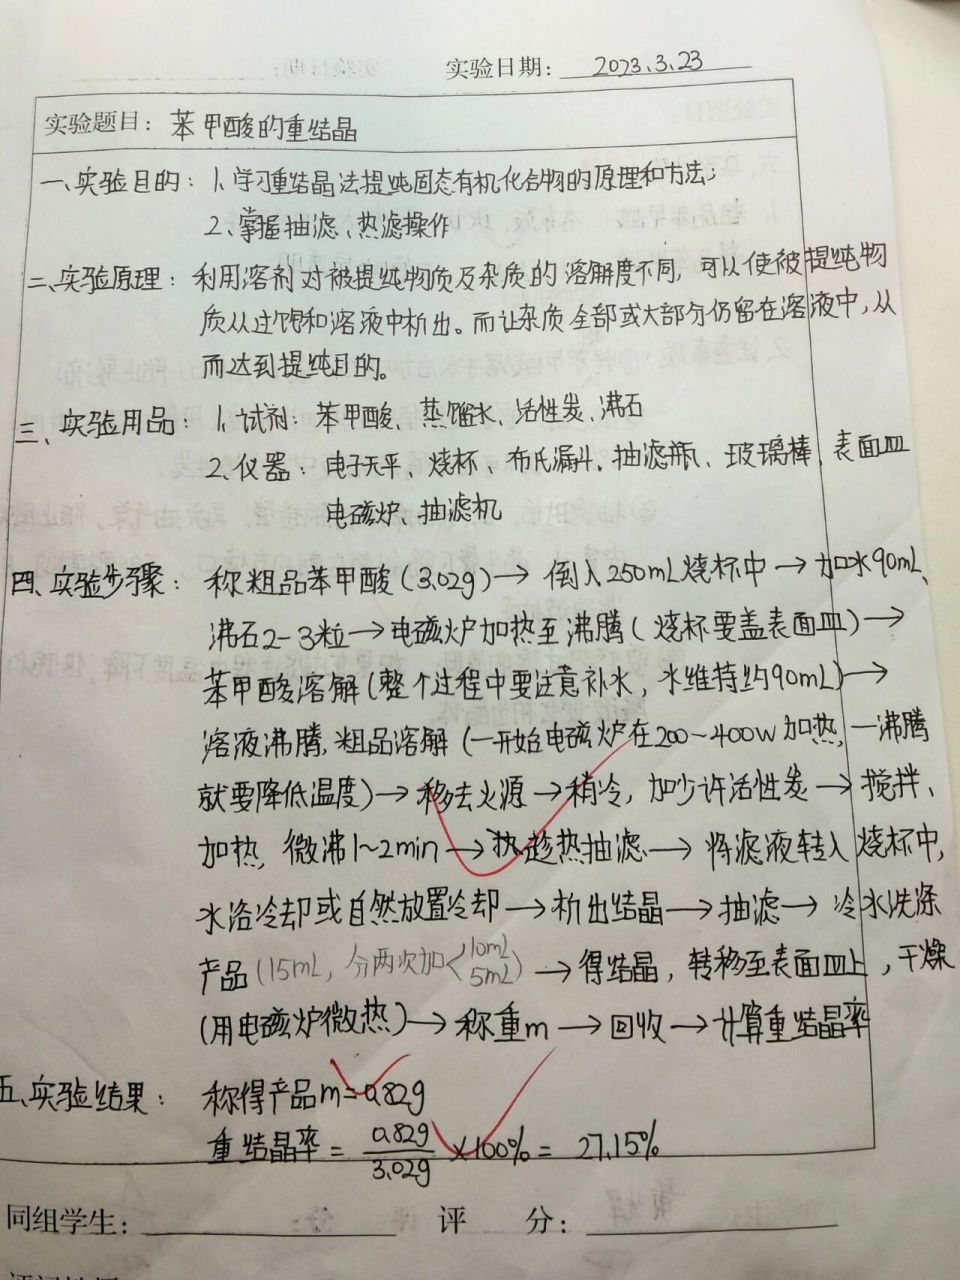 实验日期: 2023.3.23
实验题目: 苯甲酸的重结晶
一、实验目的: 1、学习重结晶法提纯固态有机化合物的原理和方法;
2、掌握抽滤、热滤操作
二、实验原理: 利用溶剂对被提纯物质及杂质的溶解度不同,可以使被提纯物
质从过饱和溶液中析出。而让杂质全部或大部分仍留在溶液中,从
而达到提纯目的。
三、实验用品: 1、试剂: 苯甲酸、蒸馏水、活性炭、沸石
2、仪器: 电子天平、烧杯、布氏漏斗、抽滤瓶、玻璃棒、表面皿
电磁炉、抽滤机
四、实验步骤: 称粗品苯甲酸(3.02g)→倒入250mL烧杯中→加水90mL、
沸石2-3粒→电磁炉加热至沸腾(烧杯要盖表面皿)→
苯甲酸溶解(整个过程中要注意补水,水维持约90mL)→
溶液沸腾,粗品溶解(一开始电磁炉在200~400W加热,一沸腾
就要降低温度)→移去火源→稍冷,加少许活性炭→搅拌、
加热,微沸1~2min→热趁热抽滤→将滤液转入烧杯中,
水浴冷却或自然放置冷却→析出结晶→抽滤→冷水洗涤
产品(15mL,分两次加<10mL 5mL)→得结晶,转移至表面皿上,干燥
(用电磁炉微热)→称重m→回收→计算重结晶率
五、实验结果: 称得产品m=0.82g
重结晶率= 0.82g/3.02g ×100%= 27.15%
同组学生: 评 分: